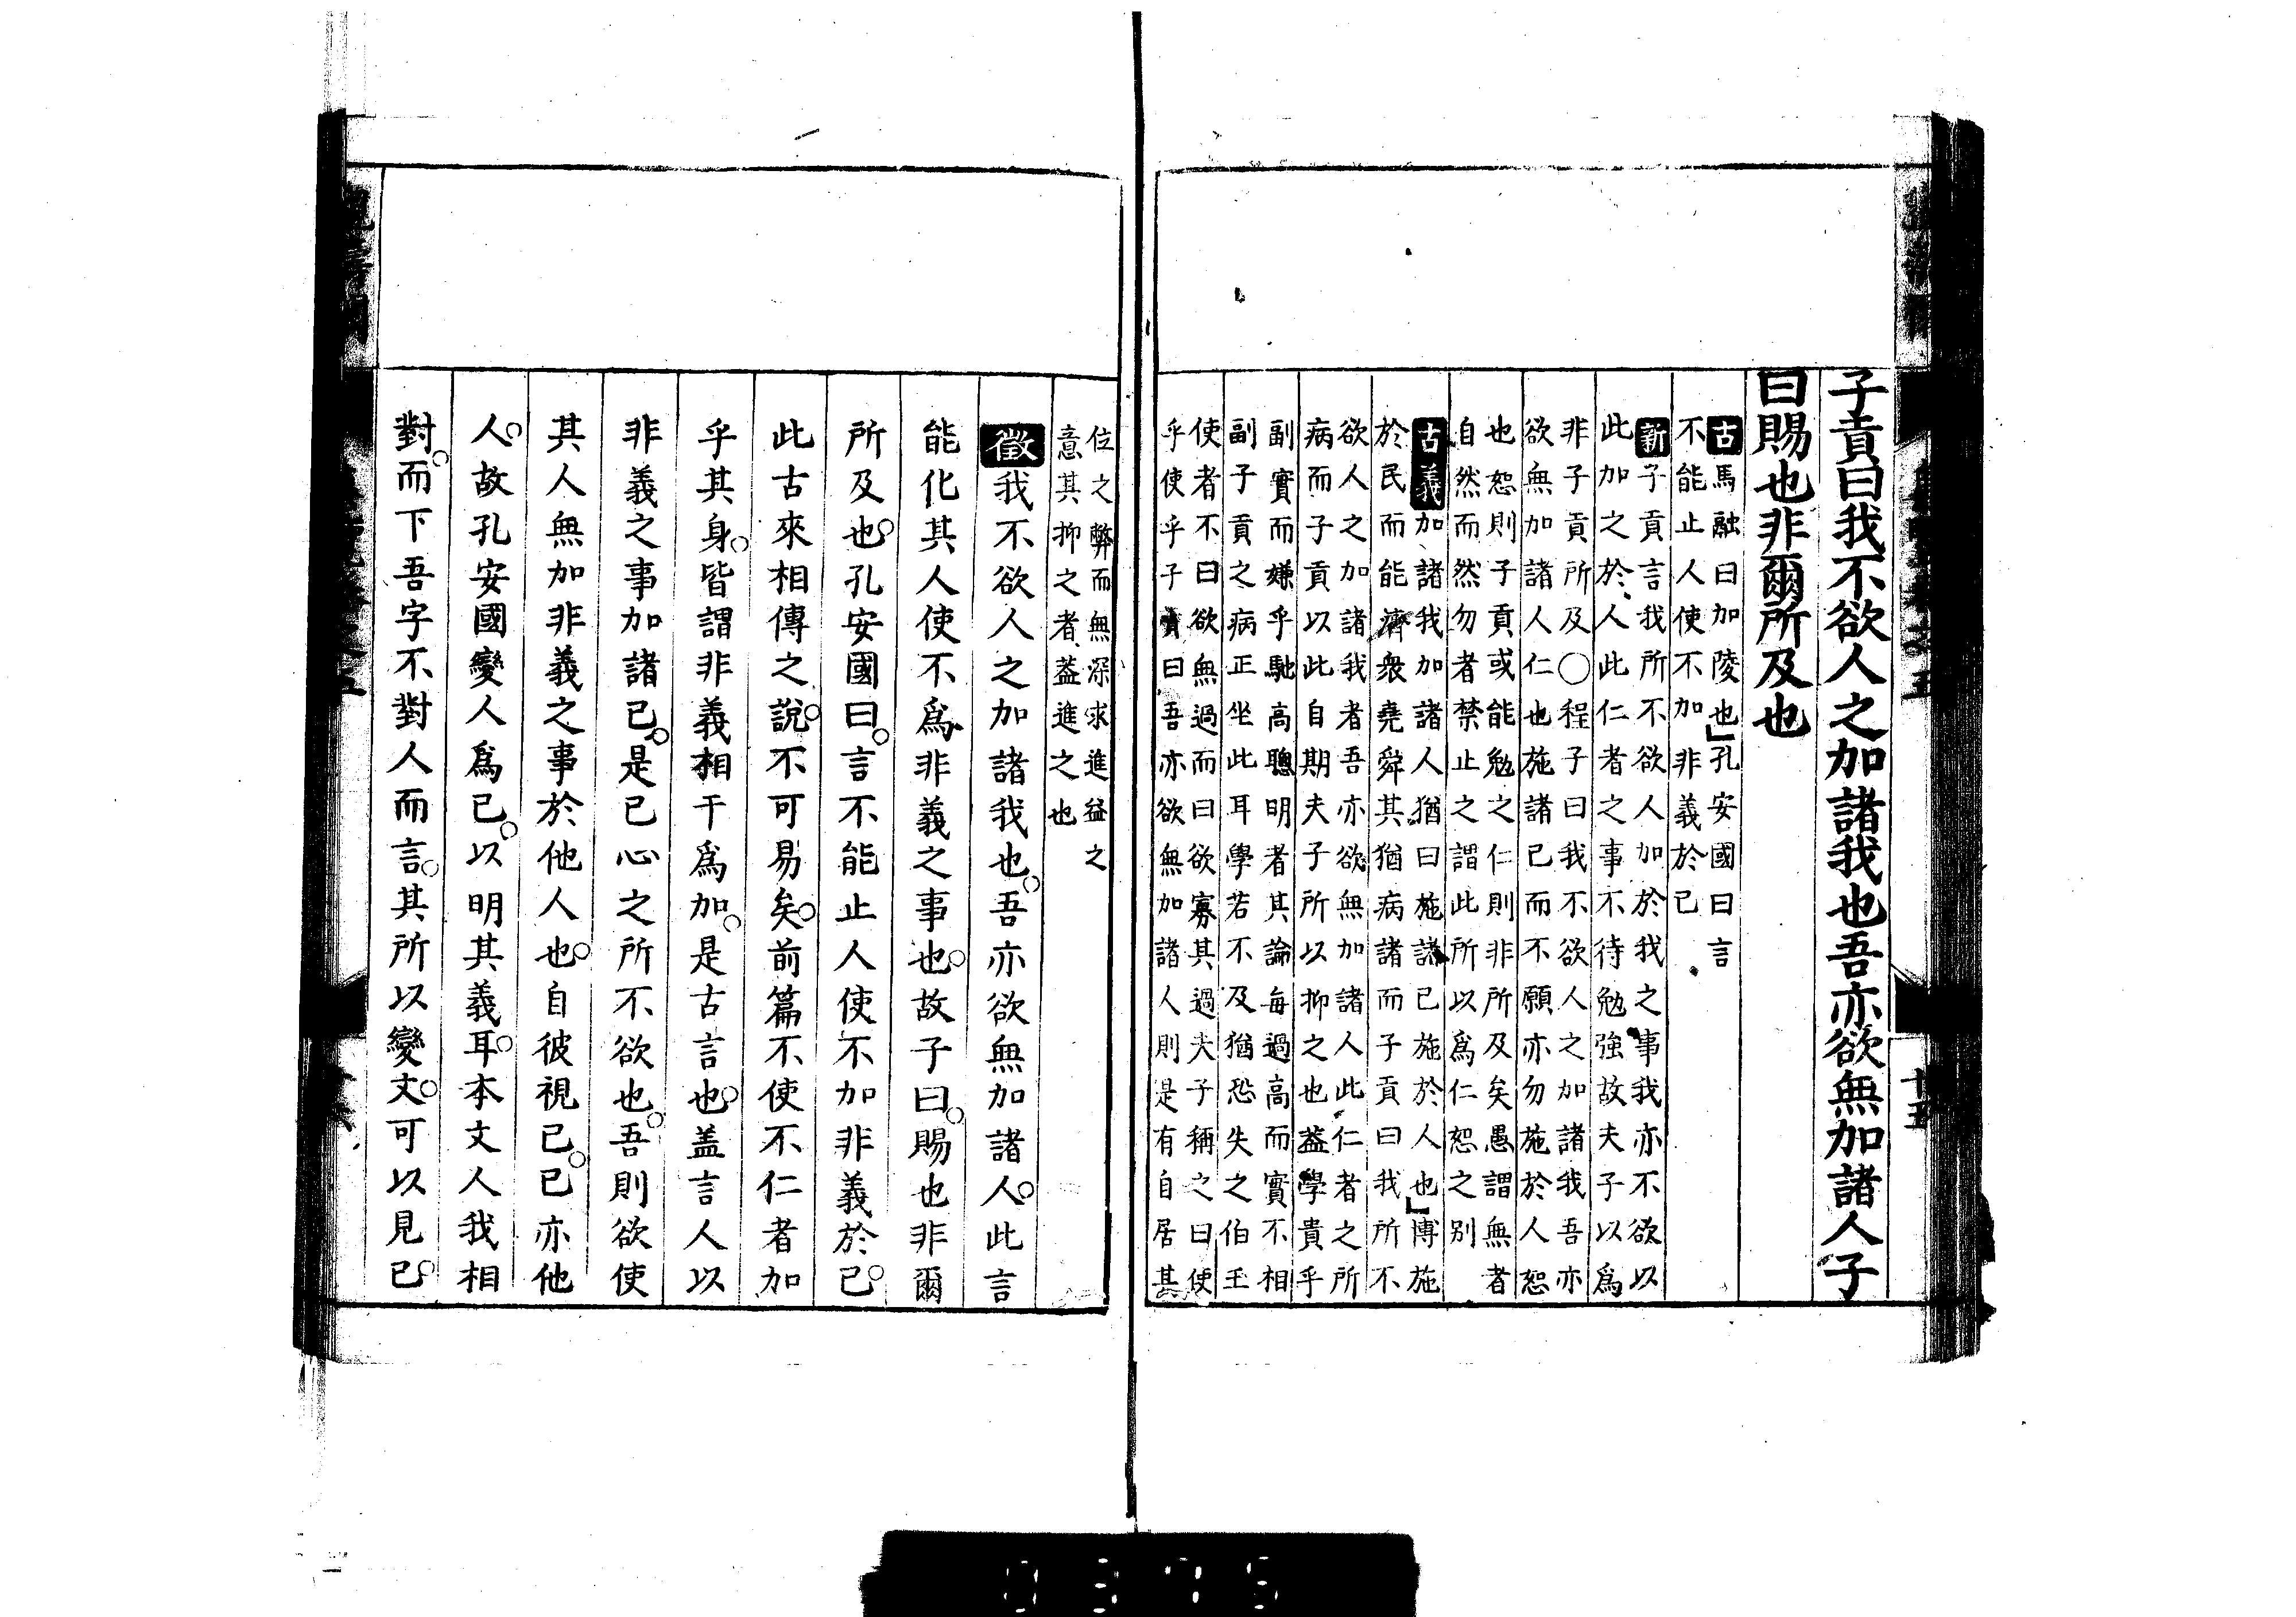 子貢曰我不欲人之加諸我也吾亦欲無加諸人子
曰賜也非爾所及也
古馬融曰加陵也」孔安國曰言
不能止人使不加非義於己
新子貢言我所不欲人加於我之事我亦不欲以
此加之於人此仁者之事不待勉強故夫子以為
非子貢所及〇程子曰我不欲人之加諸我吾亦
欲無加諸人仁也施諸己而不願亦勿施於人恕
也恕則子貢或能勉之仁則非所及矣愚謂無者
自然而然勿者禁止之謂此所以為仁恕之別
古義加諸我加諸人猶曰施諸己施於人也」博施
於民而能濟衆堯舜其猶病諸而子貢曰我所不
欲人之加諸我者吾亦欲無加諸人此仁者之所
病而子貢以此自期夫子所以抑之也葢學貴乎
副實而嫌乎馳高聰明者其論每過高而實不相
副子貢之病正坐此耳學若不及猶恐失之伯玉
使者不曰欲無過而曰欲寡其過夫子稱之曰使
乎使乎子貢曰吾亦欲無加諸人則是有自居其
位之弊而無深求進益之
意其抑之者葢進之也
徵我不欲人之加諸我也。吾亦欲無加諸人。此言
能化其人使不爲非義之事也。故子曰。賜也非爾
所及也。孔安國曰。言不能止人使不加非義於己。
此古來相傳之說。不可易矣。前篇不使不仁者加
乎其身。皆謂非義相干爲加。是古言也。盖言人以
非義之事加諸己。是己心之所不欲也。吾則欲使
其人無加非義之事於他人也。自彼視己。己亦他
人。故孔安國變人爲己。以明其義耳。本文人我相
對。而下吾字不對人而言。其所以變文。可以見已。
0375